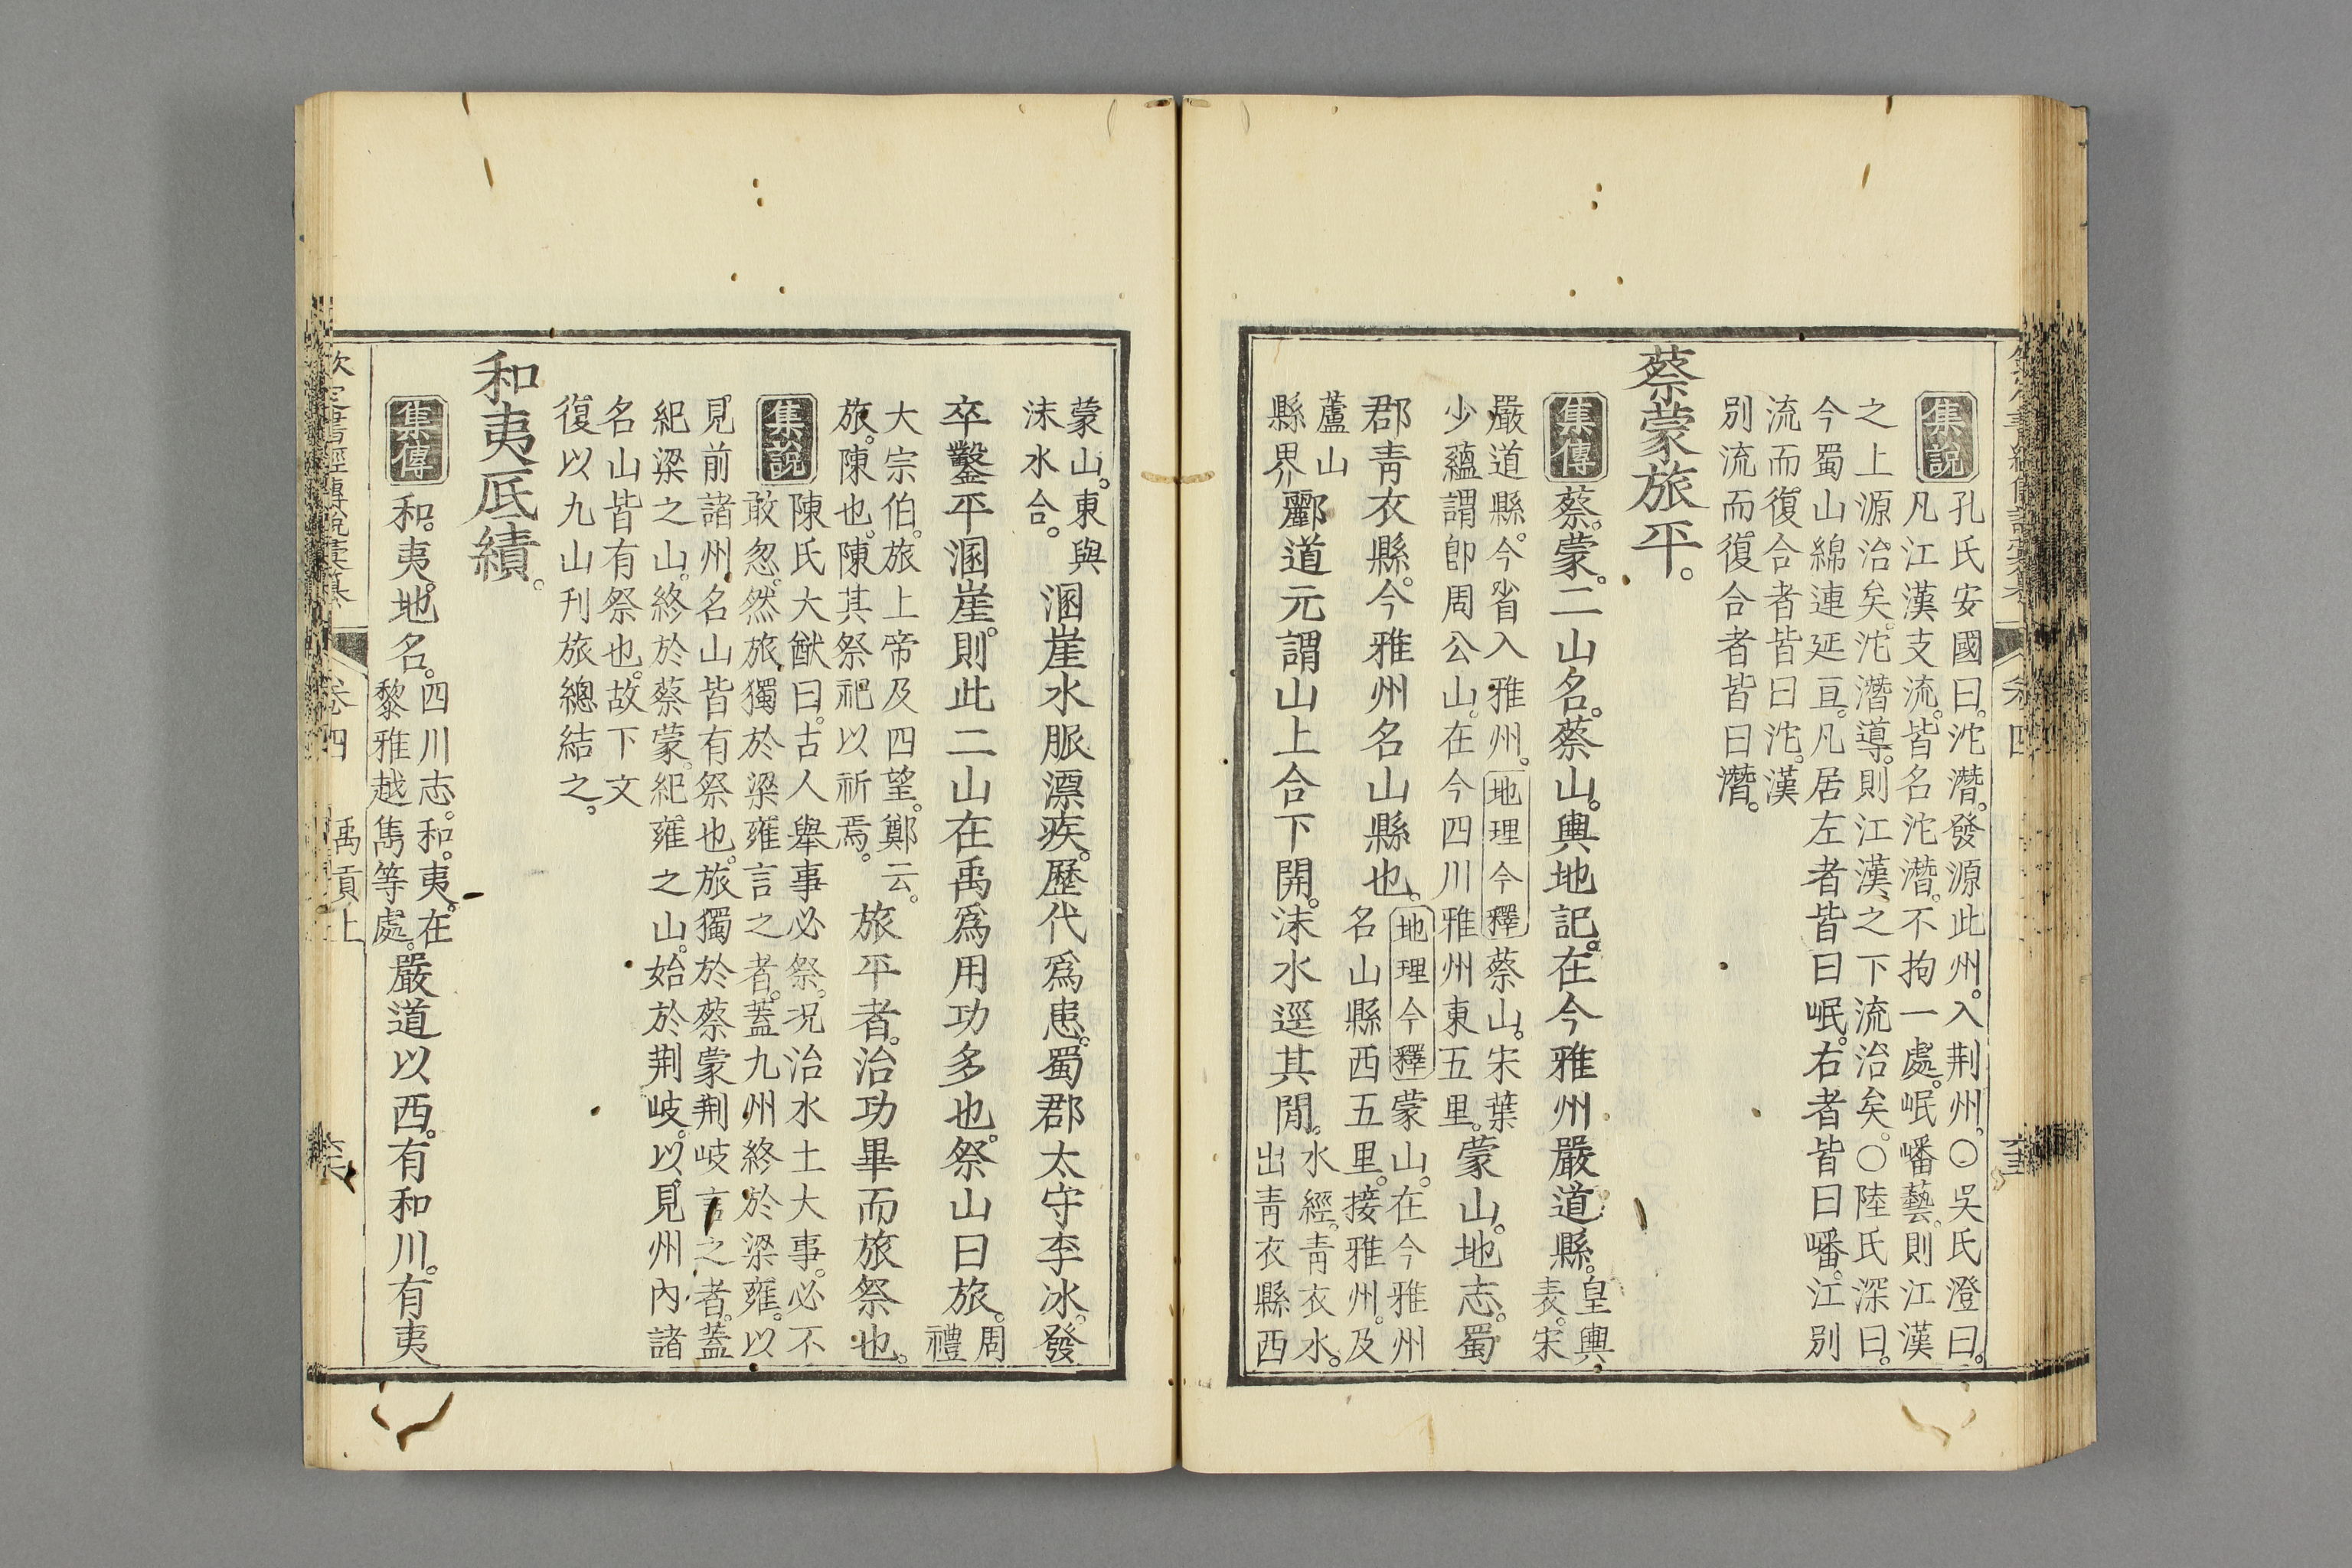 集說 孔氏安國曰。沱潛。發源此州。入荆州。〇吳氏澄曰。
凡江漢支流。皆名沱潛。不拘一處。岷嶓藝。則江漢
之上源治矣。沱潛導。則江漢之下流治矣。〇陸氏深曰。
今蜀山綿連延亘。凡居左者皆曰岷。右者皆曰嶓。江別
流而復合者皆曰沱。漢
別流而復合者皆曰潛。
蔡蒙旅平。
集傳 蔡。蒙。二山名。蔡山。輿地記。在今雅州嚴道縣。皇輿表。宋
嚴道縣。今省入雅州。地理今釋蔡山。宋葉
少蘊謂卽周公山。在今四川雅州東五里。蒙山。地志。蜀
郡靑衣縣。今雅州名山縣也。地理今釋蒙山。在今雅州
名山縣西五里。接雅州。及
蘆山
縣界酈道元謂山上合下開。沫水逕其閒。水經。靑衣水。
出靑衣縣西
蒙山。東與
沫水合。溷崖水脈漂疾。歷代爲患。蜀郡太守李冰。發
卒鑿平溷崖。則此二山在禹爲用功多也。祭山曰旅。周禮
大宗伯。旅上帝及四望。鄭云。
旅。陳也。陳其祭祀以祈焉。旅平者。治功畢而旅祭也。
集說 陳氏大猷曰。古人舉事必祭。况治水土大事。必不
敢忽。然旅獨於梁雍言之者。蓋九州終於梁雍。以
見前諸州名山皆有祭也。旅獨於蔡蒙荆岐言之者。蓋
紀梁之山。終於蔡蒙。紀雍之山。始於荆岐。以見州內諸
名山皆有祭也。故下文
復以九山刊旅總結之。
和夷厎績。
集傳 和。夷。地名。四川志。和。夷。在
黎雅越雋等處。嚴道以西。有和川。有夷
欽定書經傳說彙纂 卷四 禹貢上